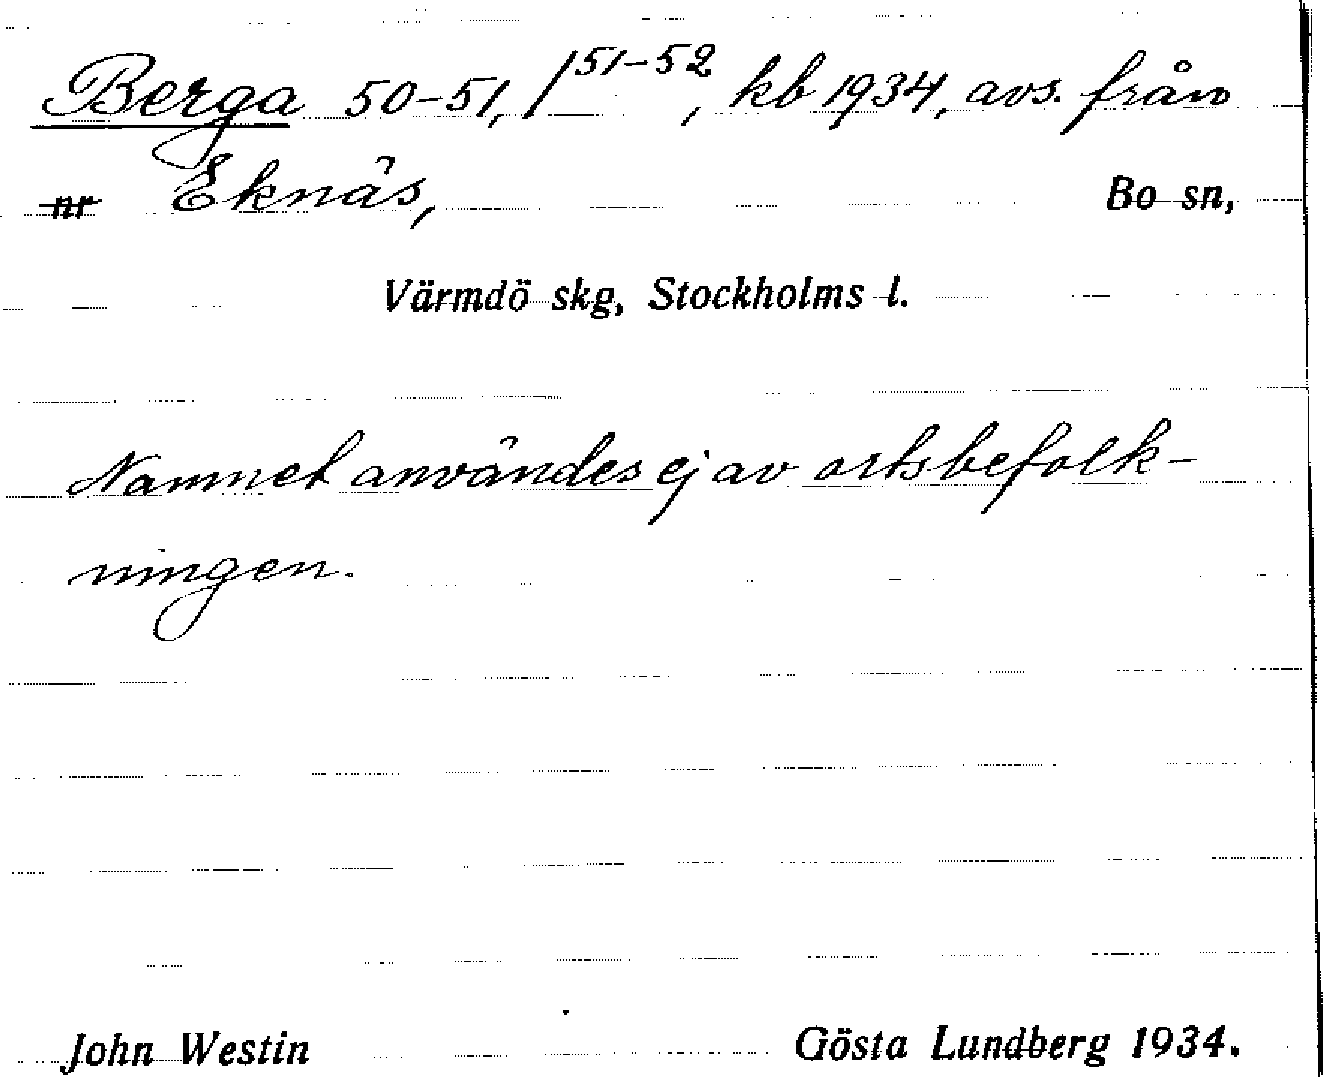 Berga 50-51, / 51-52, kb 1934, avs. från
nr Eknäs, Bo sn,
Värmdö skg, Stockholms l.
Namnet användes ej av ortsbefolk-
ningen.
John Westin Gösta Lundberg 1934.